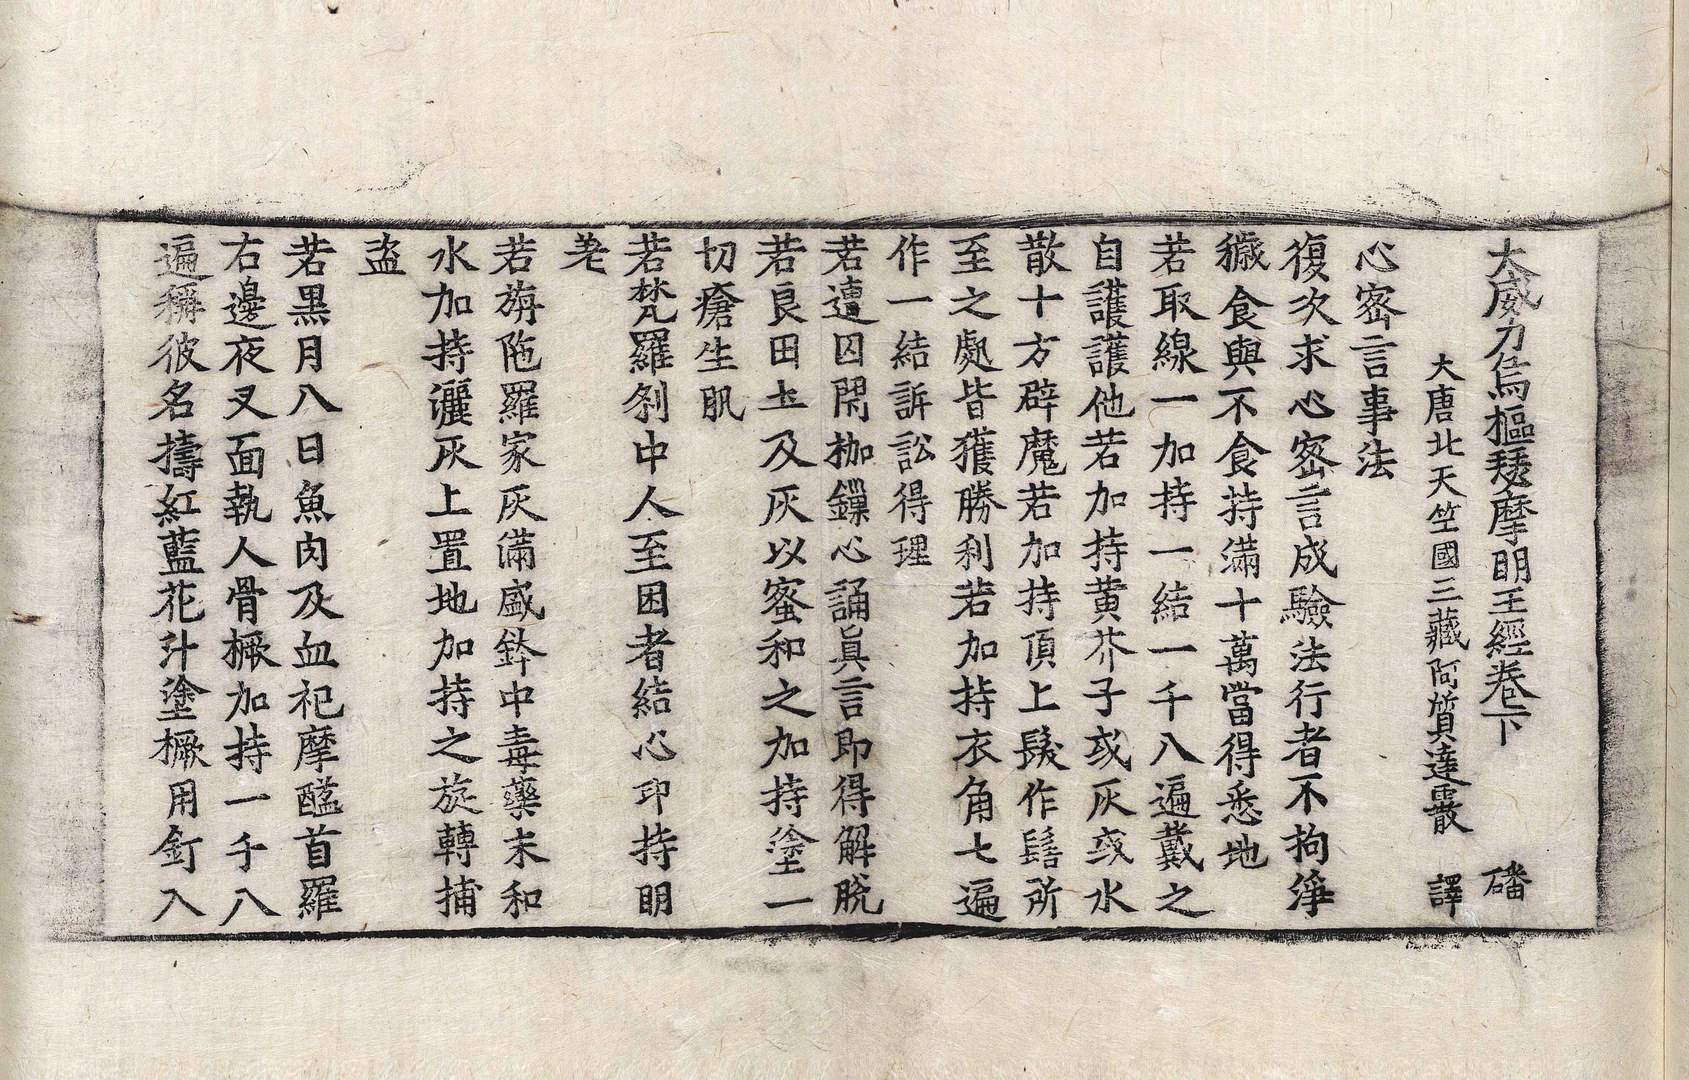 大威力烏樞瑟摩明王經卷下 磻
大唐北天竺國三藏阿質達霰 譯
心密言事法
復次求心密言成驗法行者不拘淨
穢食與不食持滿十萬當得悉地
若取線一加持一結一千八遍戴之
自護護他若加持黃芥子或灰或水
散十方辟魔若加持頂上髮作髻所
至之處皆獲勝利若加持衣角七遍
作一結訴訟得理
若遭囚閉枷鏁心誦眞言即得解脫
若良田土及灰以蜜和之加持塗一
切瘡生肌
若梵羅刹中人至困者結心印持明
差
若旃陁羅家灰滿盛鉢中毒藥末和
水加持灑灰上置地加持之旋轉捕
盗
若黑月八日魚肉及血祀摩醯首羅
右邊夜叉面執人骨橛加持一千八
遍稱彼名擣紅藍花汁塗橛用釘入